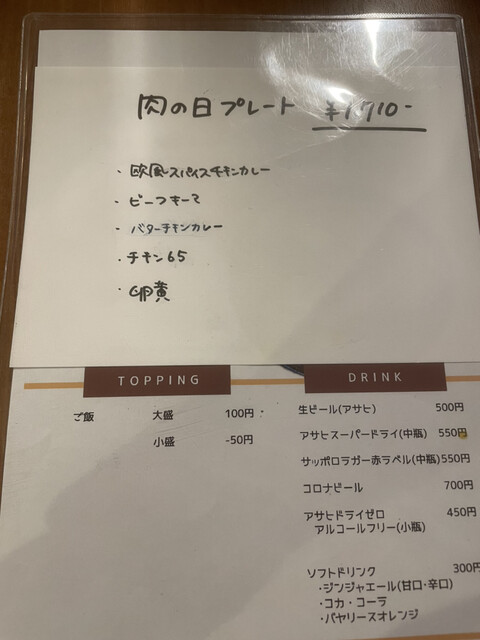 肉の日プレート ¥1,710-
・欧風スパイスチキンカレー
・ビーフキーマ
・バターチキンカレー
・チキン65
・卵黄
TOPPING
ご飯 大盛 100円
小盛 -50円
DRINK
生ビール(アサヒ) 500円
アサヒスーパードライ(中瓶) 550円
サッポロラガー赤ラベル(中瓶)550円
コロナビール 700円
アサヒドライゼロ 450円
アルコールフリー(小瓶)
ソフトドリンク 300円
・ジンジャエール(甘口・辛口)
・コカ・コーラ
・バヤリースオレンジ